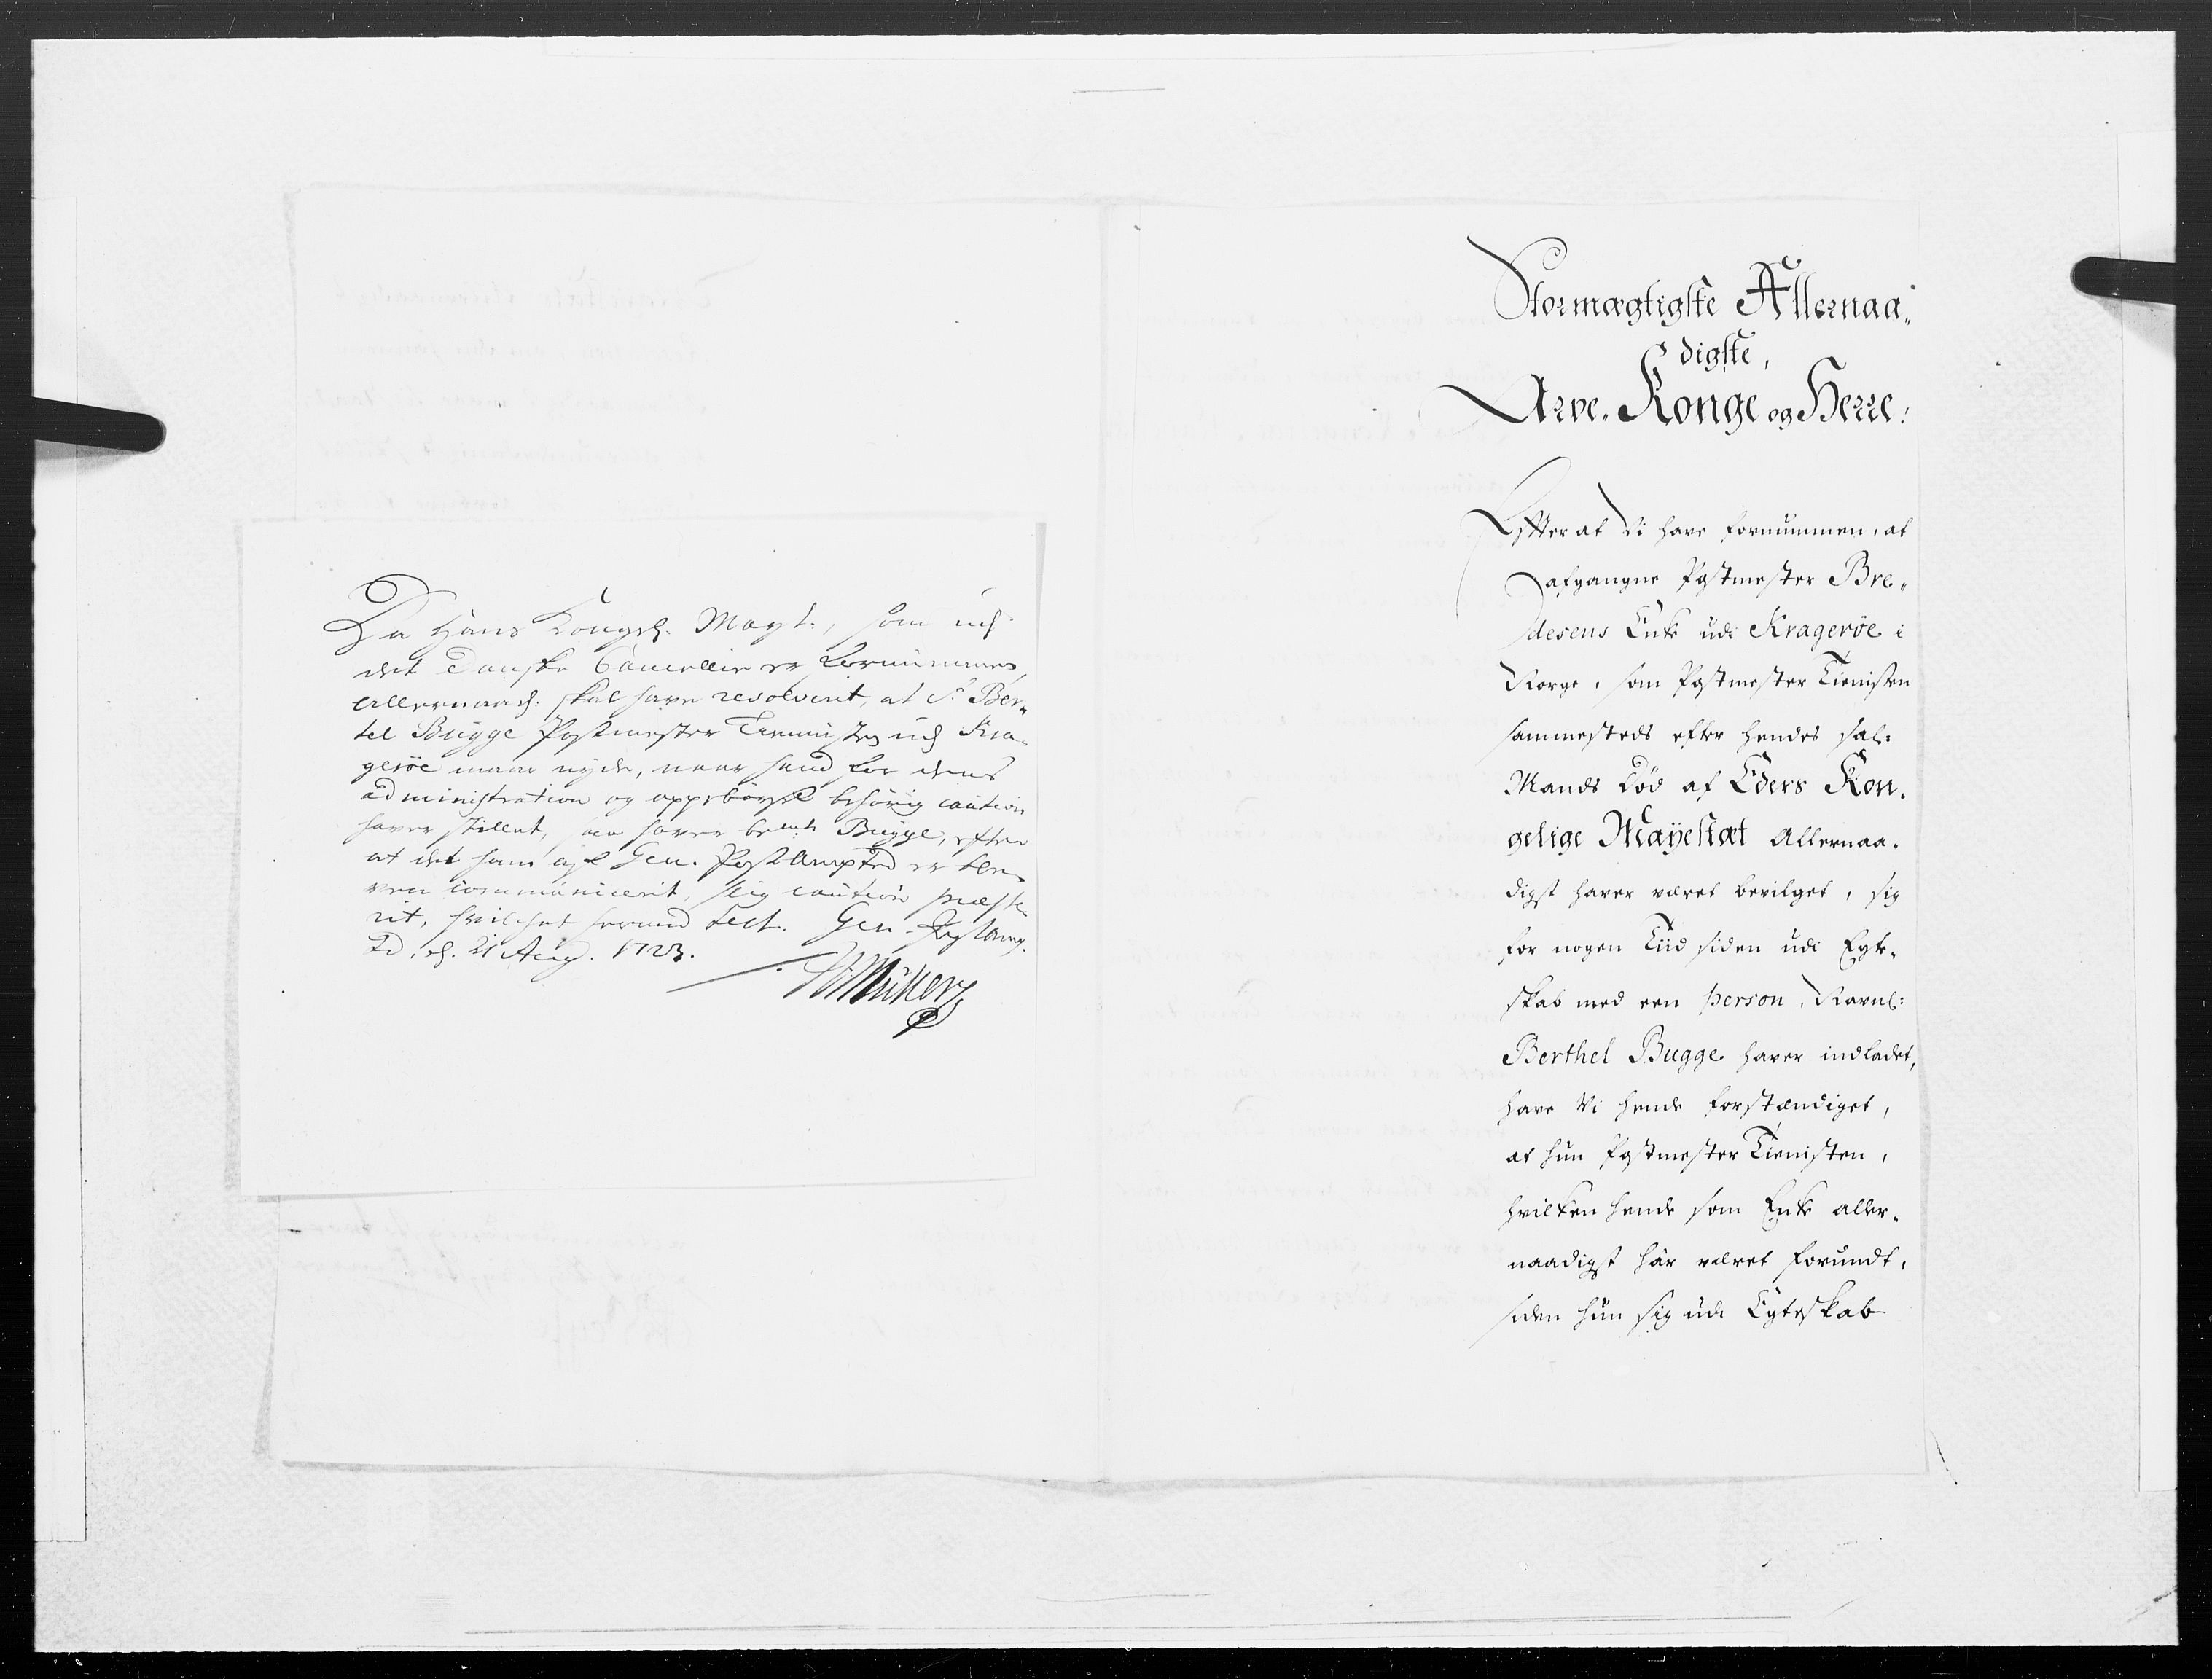 Da Hans Kongl. Mayt., som udj
det Danske Cancellie er fornummen,
allernaad: skal have resolverit, at Sr Ber„
tel Bugge Postmester Tiennisten udj Kra„
gerøe maae nyde, naar hand for dens
administration og oppebørsel behørig caution
haver stillet, saa haver bemte Bugge, efter
at det ham af Gen. Post Ampted er ble„
ven communicerit, slig caution præste„
rit, hvilchet herved Test. Gen. Post Amp„
ted, d. 21 Aug. 1723.
Stormægtigste Allernaa„
digste,
Arve„ Konge og Herre!
Effter at Vi have fornummen, at
afgangne Postmester Bre„
desens Enke udi Kragerøe i
Norge, som Postmester Tienisten
sammesteds efter hendes sal:
Mands Død af Eders Kon„
gelige Mayestæt Allernaa„
digst haver været bevilget, sig
for nogen Tiid siden udi Egte„
skab med een person, Navnl:
Berthel Bugge haver indladet,
have Vi hende forstændiget,
at hun Postmester Tienisten,
hvilken hende som Enke aller„
naadigst har været forundt,
siden hun sig udi Egteskab